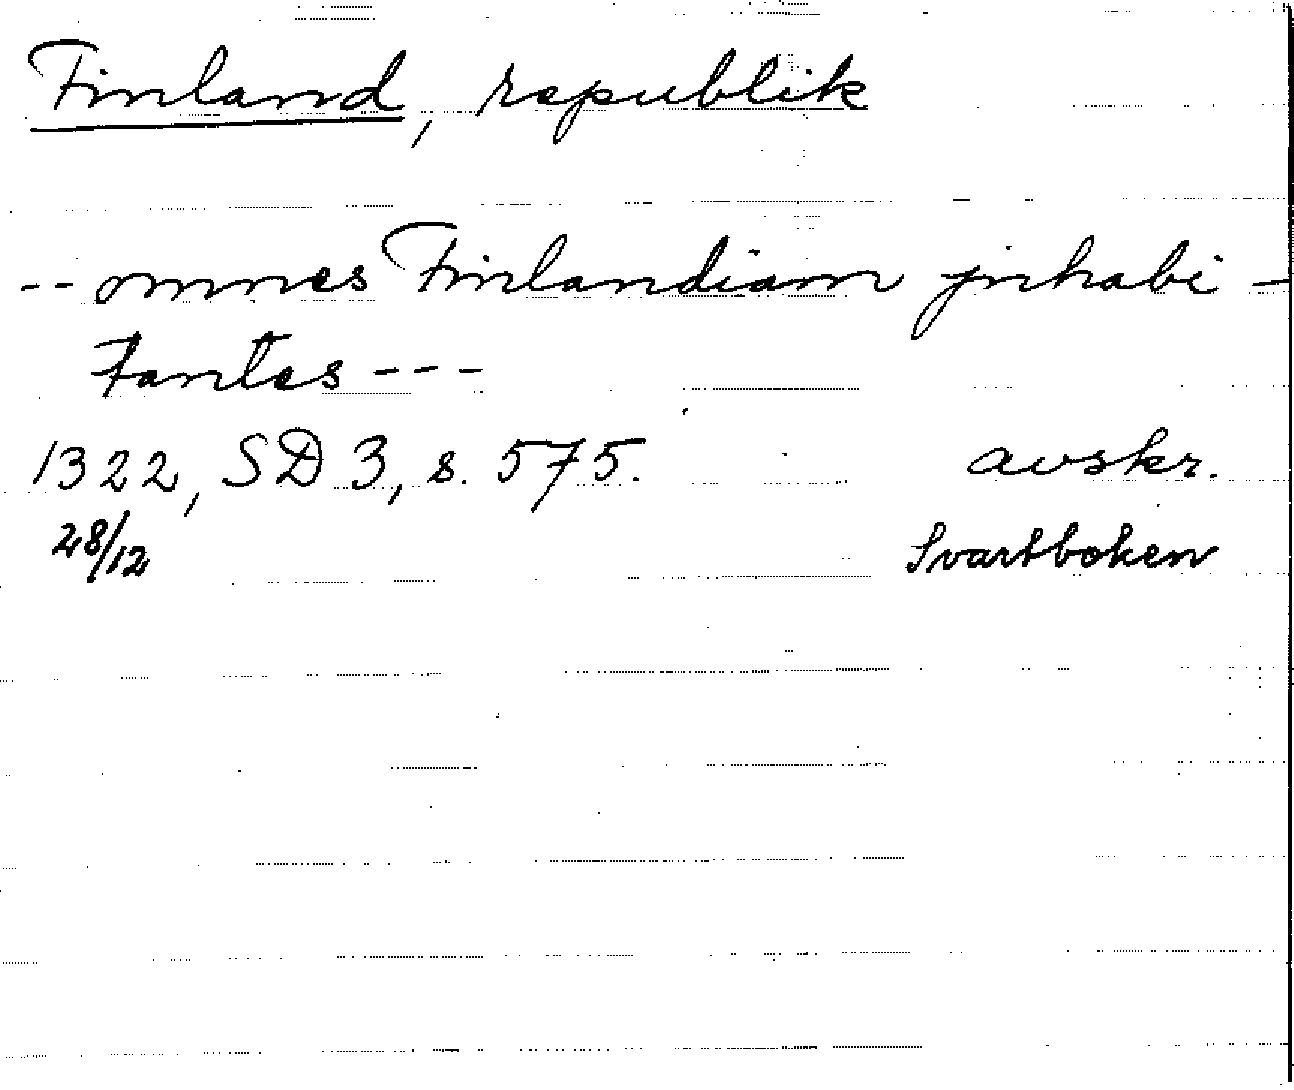 Finland, republik
-- omnes Finlandiam jnhabi-
tantes ---
1322, SD 3, s. 575. avskr.
28/12 Svartboken